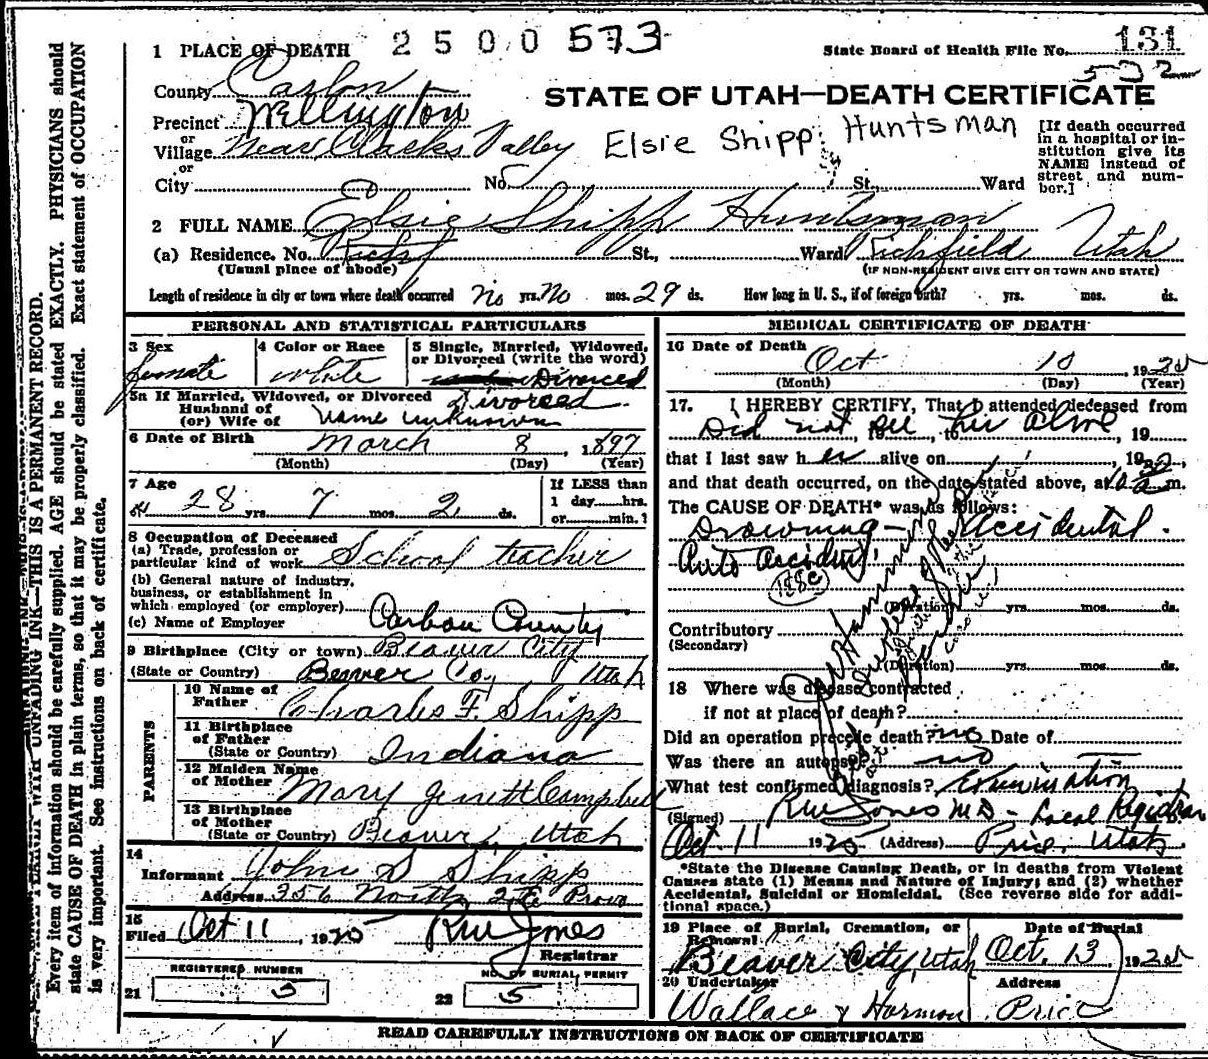 1 PLACE OF DEATH 2500573 State Board of Health File No. 131
532
County Carbon
STATE OF UTAH—DEATH CERTIFICATE
Precinct Wellington
or
Village Near Clarks Valley Elsie Shipp Huntsman
or
City No. St. Ward
[If death occurred in a hospital or in-
stitution give its
NAME instead of
street and num-
ber.]
2 FULL NAME Elsie Shipp Huntsman
(a) Residence. No. St., Ward Richfield Utah
(Usual place of abode) (IF NON-RESIDENT GIVE CITY OR TOWN AND STATE)
Length of residence in city or town where death occurred No yrs. No mos. 29 ds. How long in U. S., if of foreign birth? yrs. mos. ds.
PERSONAL AND STATISTICAL PARTICULARS
3 Sex female
4 Color or Race white
5 Single, Married, Widowed,
or Divorced (write the word)
Divorced
5a If Married, Widowed, or Divorced Divorced
Husband of
(or) Wife of Name unknown
6 Date of Birth March 8, 1897
(Month) (Day) (Year)
7 Age 28 yrs. 7 mos. 2 ds.
If LESS than
1 day hrs.
or min.?
8 Occupation of Deceased
(a) Trade, profession or
particular kind of work School teacher
(b) General nature of industry,
business, or establishment in
which employed (or employer)
(c) Name of Employer Carbon County
9 Birthplace (City or town) Beaver City
(State or Country) Beaver Co, Utah
PARENTS
10 Name of
Father Charles F. Shipp
11 Birthplace
of Father
(State or Country) Indiana
12 Maiden Name
of Mother Mary Campbell
13 Birthplace
of Mother
(State or Country) Beaver, Utah
14
Informant John S Shipp
Address 356 North 2 E Provo
15
Filed Oct 11, 1925 Jones
Registrar
REGISTERED NUMBER NO. OF BURIAL PERMIT
21 5 22 5
MEDICAL CERTIFICATE OF DEATH
16 Date of Death Oct 10, 1925
(Month) (Day) (Year)
17. I HEREBY CERTIFY, That I attended deceased from
Did not see, 19, to her alive, 19
that I last saw her alive on , 19
and that death occurred, on the date stated above, at 10 a m.
The CAUSE OF DEATH* was as follows:
Drowning — Accidental.
Auto Accident.
188c
(Duration) yrs. mos. ds.
Contributory
(Secondary)
(Duration) yrs. mos. ds.
18 Where was disease contracted
if not at place of death?
Did an operation precede death? no Date of
Was there an autopsy? no
What test confirmed diagnosis? Examination
(Signed) Jones M.D. – Local Registrar
Oct. 11 1925 (Address) Price, Utah
*State the Disease Causing Death, or in deaths from Violent
Causes state (1) Means and Nature of Injury; and (2) whether
Accidental, Suicidal or Homicidal. (See reverse side for addi-
tional space.)
19 Place of Burial, Cremation, or
Removal
Beaver City, Utah
Date of Burial
Oct. 13 1925
20 Undertaker
Wallace & Harmon
Address
Price
READ CAREFULLY INSTRUCTIONS ON BACK OF CERTIFICATE
WRITE PLAINLY WITH UNFADING INK—THIS IS A PERMANENT RECORD.
Every item of information should be carefully supplied. AGE should be stated EXACTLY. PHYSICIANS should
state CAUSE OF DEATH in plain terms, so that it may be properly classified. Exact statement of OCCUPATION
is very important. See instructions on back of certificate.